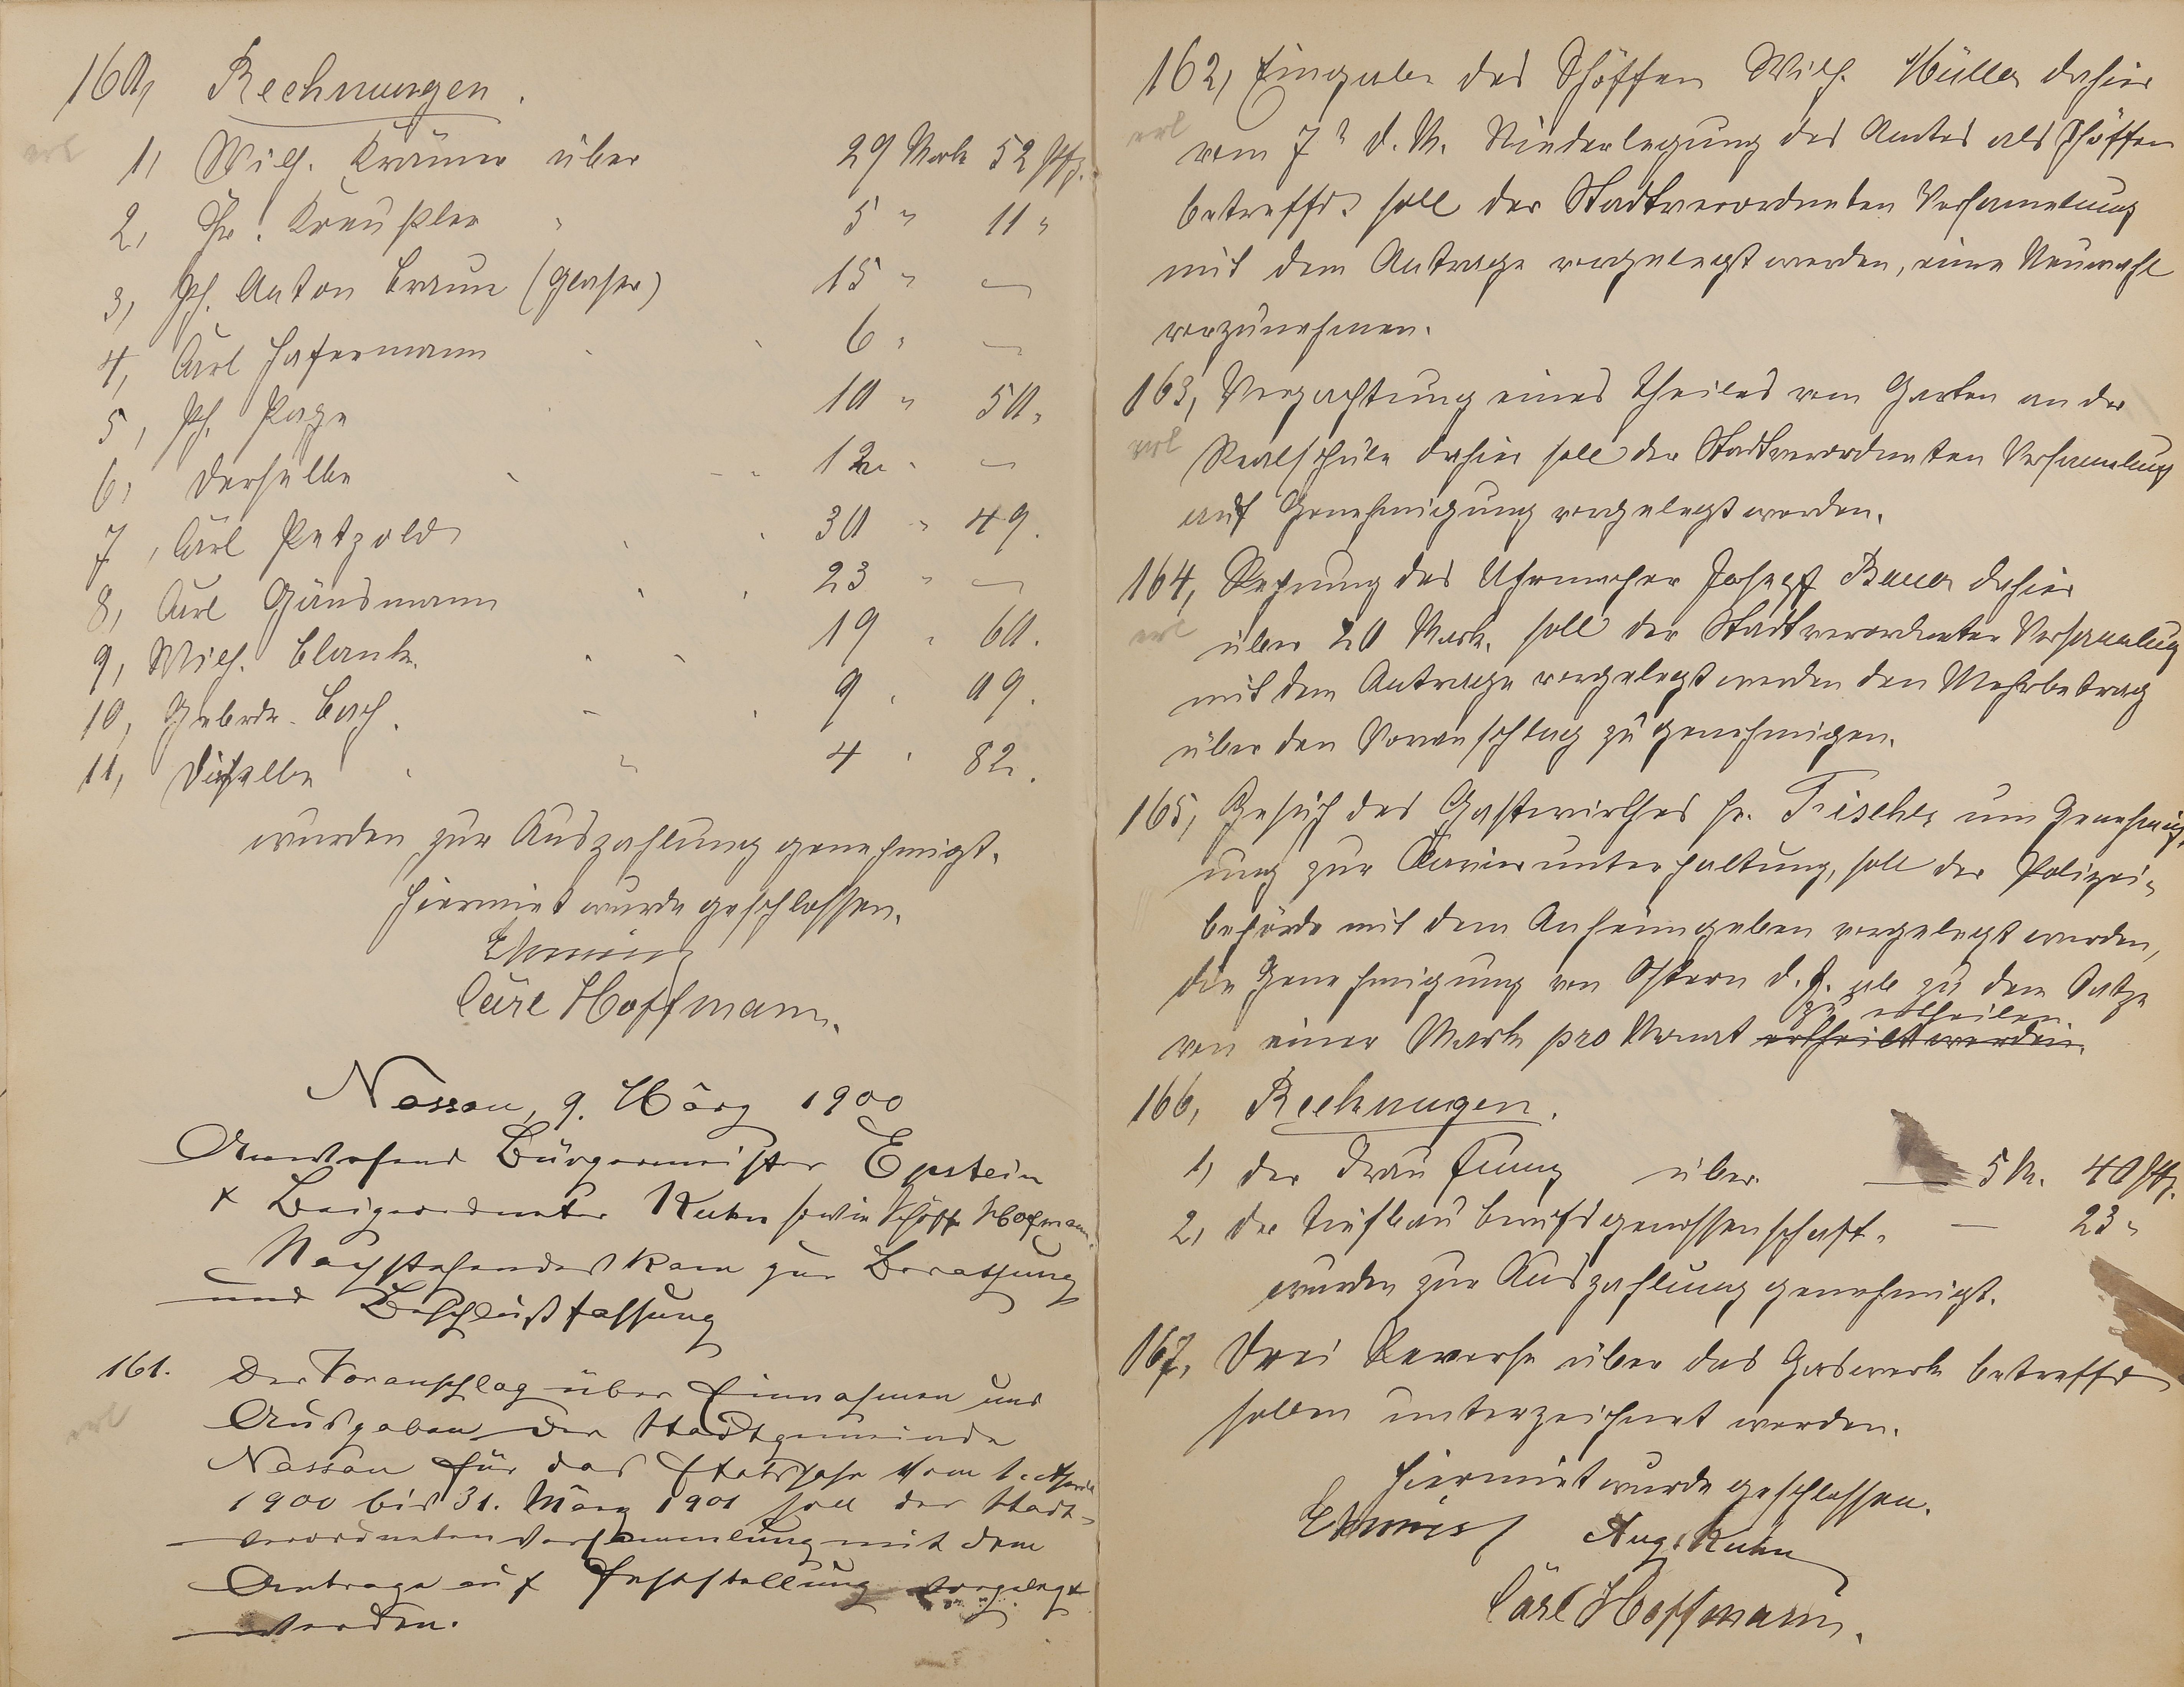 160, Rechnungen.
erl
1, Wilh. Krämer über 29 Mark 52 Pfg.
2, Chr. Kreußler " 5 " 11 "
3, Ph. Anton Braun (Glaser) 15 " —
4, Carl Hafermann " " 6 " —
5, Ph. Page " 10 " 50 "
6, Derselbe " " 12 " —
7, Carl Petzold " " 30 " 49.
8, Carl Gänsmann " " 23 " —
9, Wilh. Blank " " 19 " 60.
10, Gebrdr. Bach. " " 9 " 09.
11, Dieselbe " " 4 " 82.
wurden zur Auszahlung genehmigt.
Hiermit wurde geschlossen.
Carl Hoffmann.
Nassau, 9. März 1900
Anwesend Bürgermeister Epstein
+ Beigeordneter Kuhn sowie Schöffe Hofmann.
Nachstehendes kam zur Berathung
und Beschlußfassung
161. Der Voranschlag über Einnahmen und
erl
Ausgaben der Stadtgemeinde
Nassau für das Etatsjahr vom 1. April
1900 bis 31. März 1901 soll der Stadt-
verordnetenversammlung mit dem
Antrage auf Feststellung vorgelegt
werden.
162, Eingabe des Schöffen Wilh. Müller dahier
erl
vom 7t d. M. Niederlegung des Amtes als Schöffen
betreffd. soll der Stadtverordneten Versamelung
mit dem Antrage vorgelegt werden, eine Neuwahl
vorzunehmen.
163, Verpachtung eines Theiles vom Garten an der
erl
Realschule dahier soll der Stadtverordneten Versammlung
auf Genehmigung vorgelegt werden.
164, Rechnung des Uhrmacher Joseph Bauer dahier
erl
über 20 Mark. soll der Stadtverordneten Versammlung
mit dem Antrage vorgelegt werden den Mehrbetrag
über den Voranschlag zu genehmigen.
165, Gesuch des Gastwirthes Hr. Trischler um Genehmig-
ung zur Clavierunterhaltung, soll der Polizei-
behörde mit dem Anheimgeben vorgelegt werden,
die Genehmigung von Ostern d. J. ab zu dem Satze
zu ertheilen
von einer Mark pro Monat ertheilt werden.
166, Rechnungen.
1, der Frau Fung über — 5 M. 40 Pfg.
2, der Tiefbau Berufsgenossenschaft. — 23 "
wurden zur Auszahlung genehmigt.
167, Drei Reverse über das Gaswerk betreffd
sollen unterzeichnet werden.
Hiermit wurde geschlossen.
Aug. Kuhn
Carl Hoffmann.